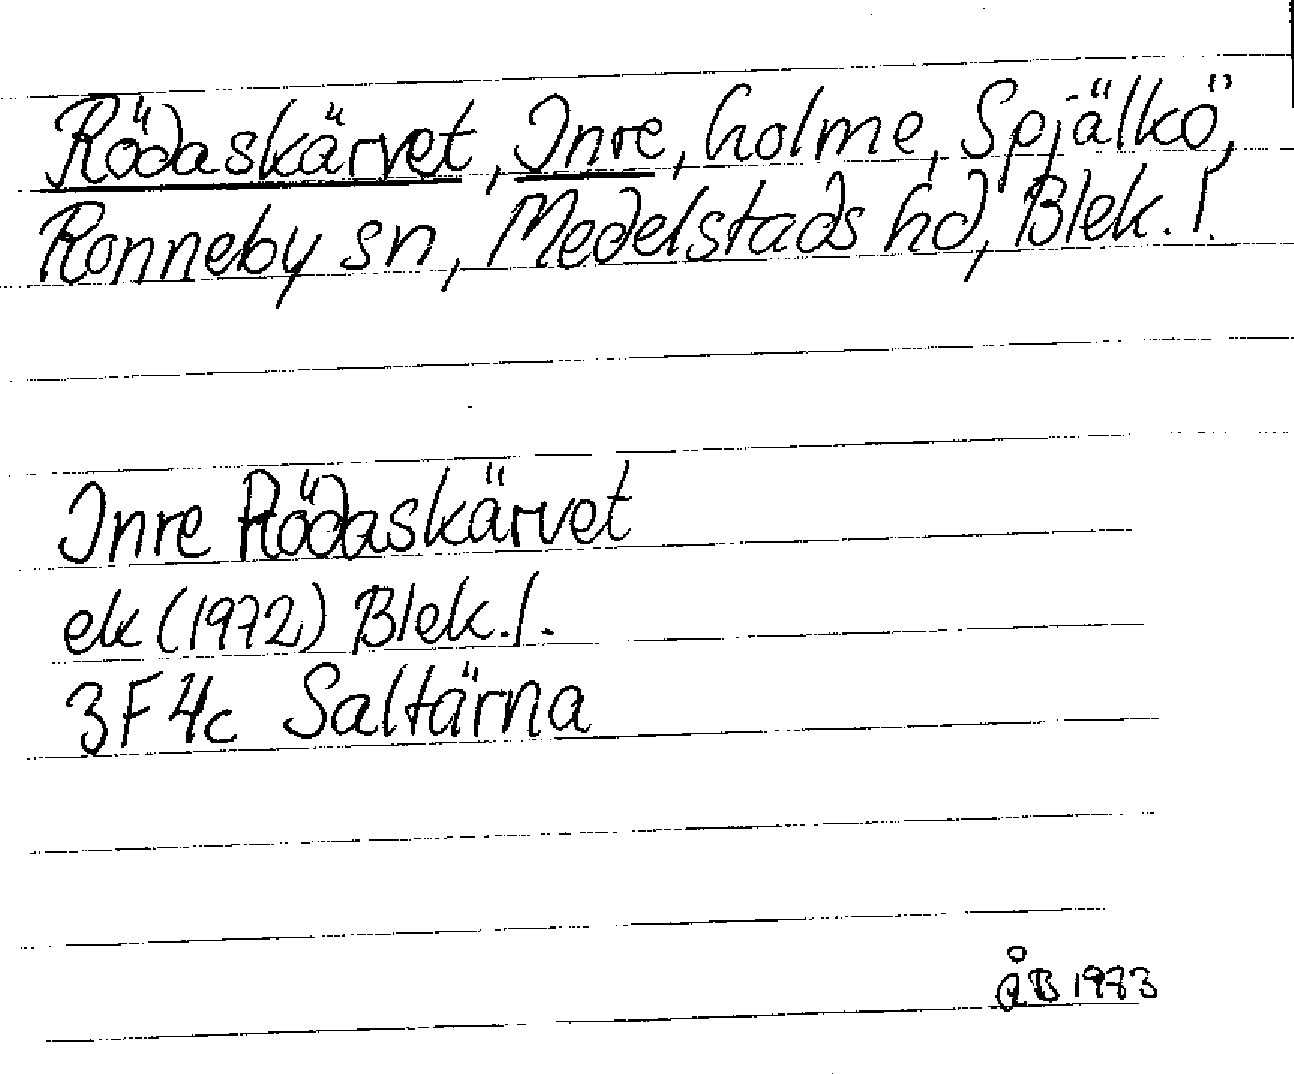 Rödaskärvet, Inre, holme, Spjälkö,
Ronneby sn, Medelstads hd, Blek. l.
Inre Rödaskärvet
ek (1972) Blek. l.
3F 4c Saltärna
ÅB 1973